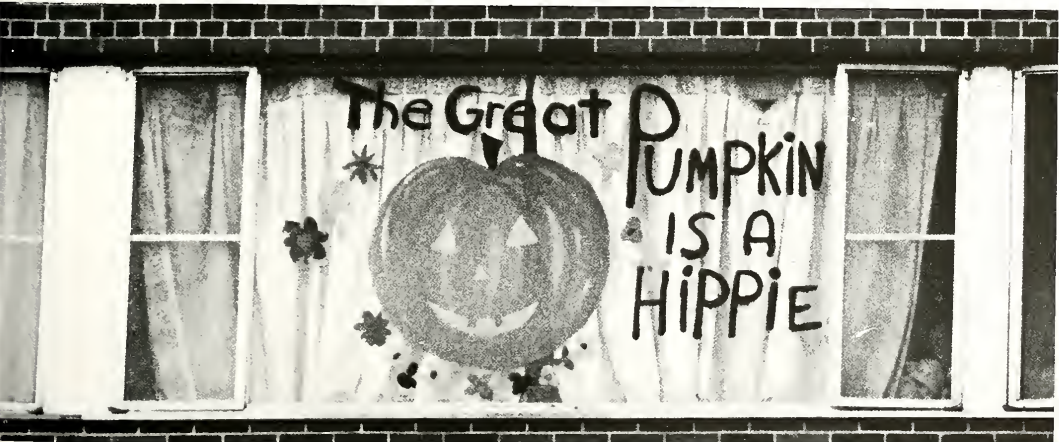 The Great PUMPKIN
IS A
HiPPiE